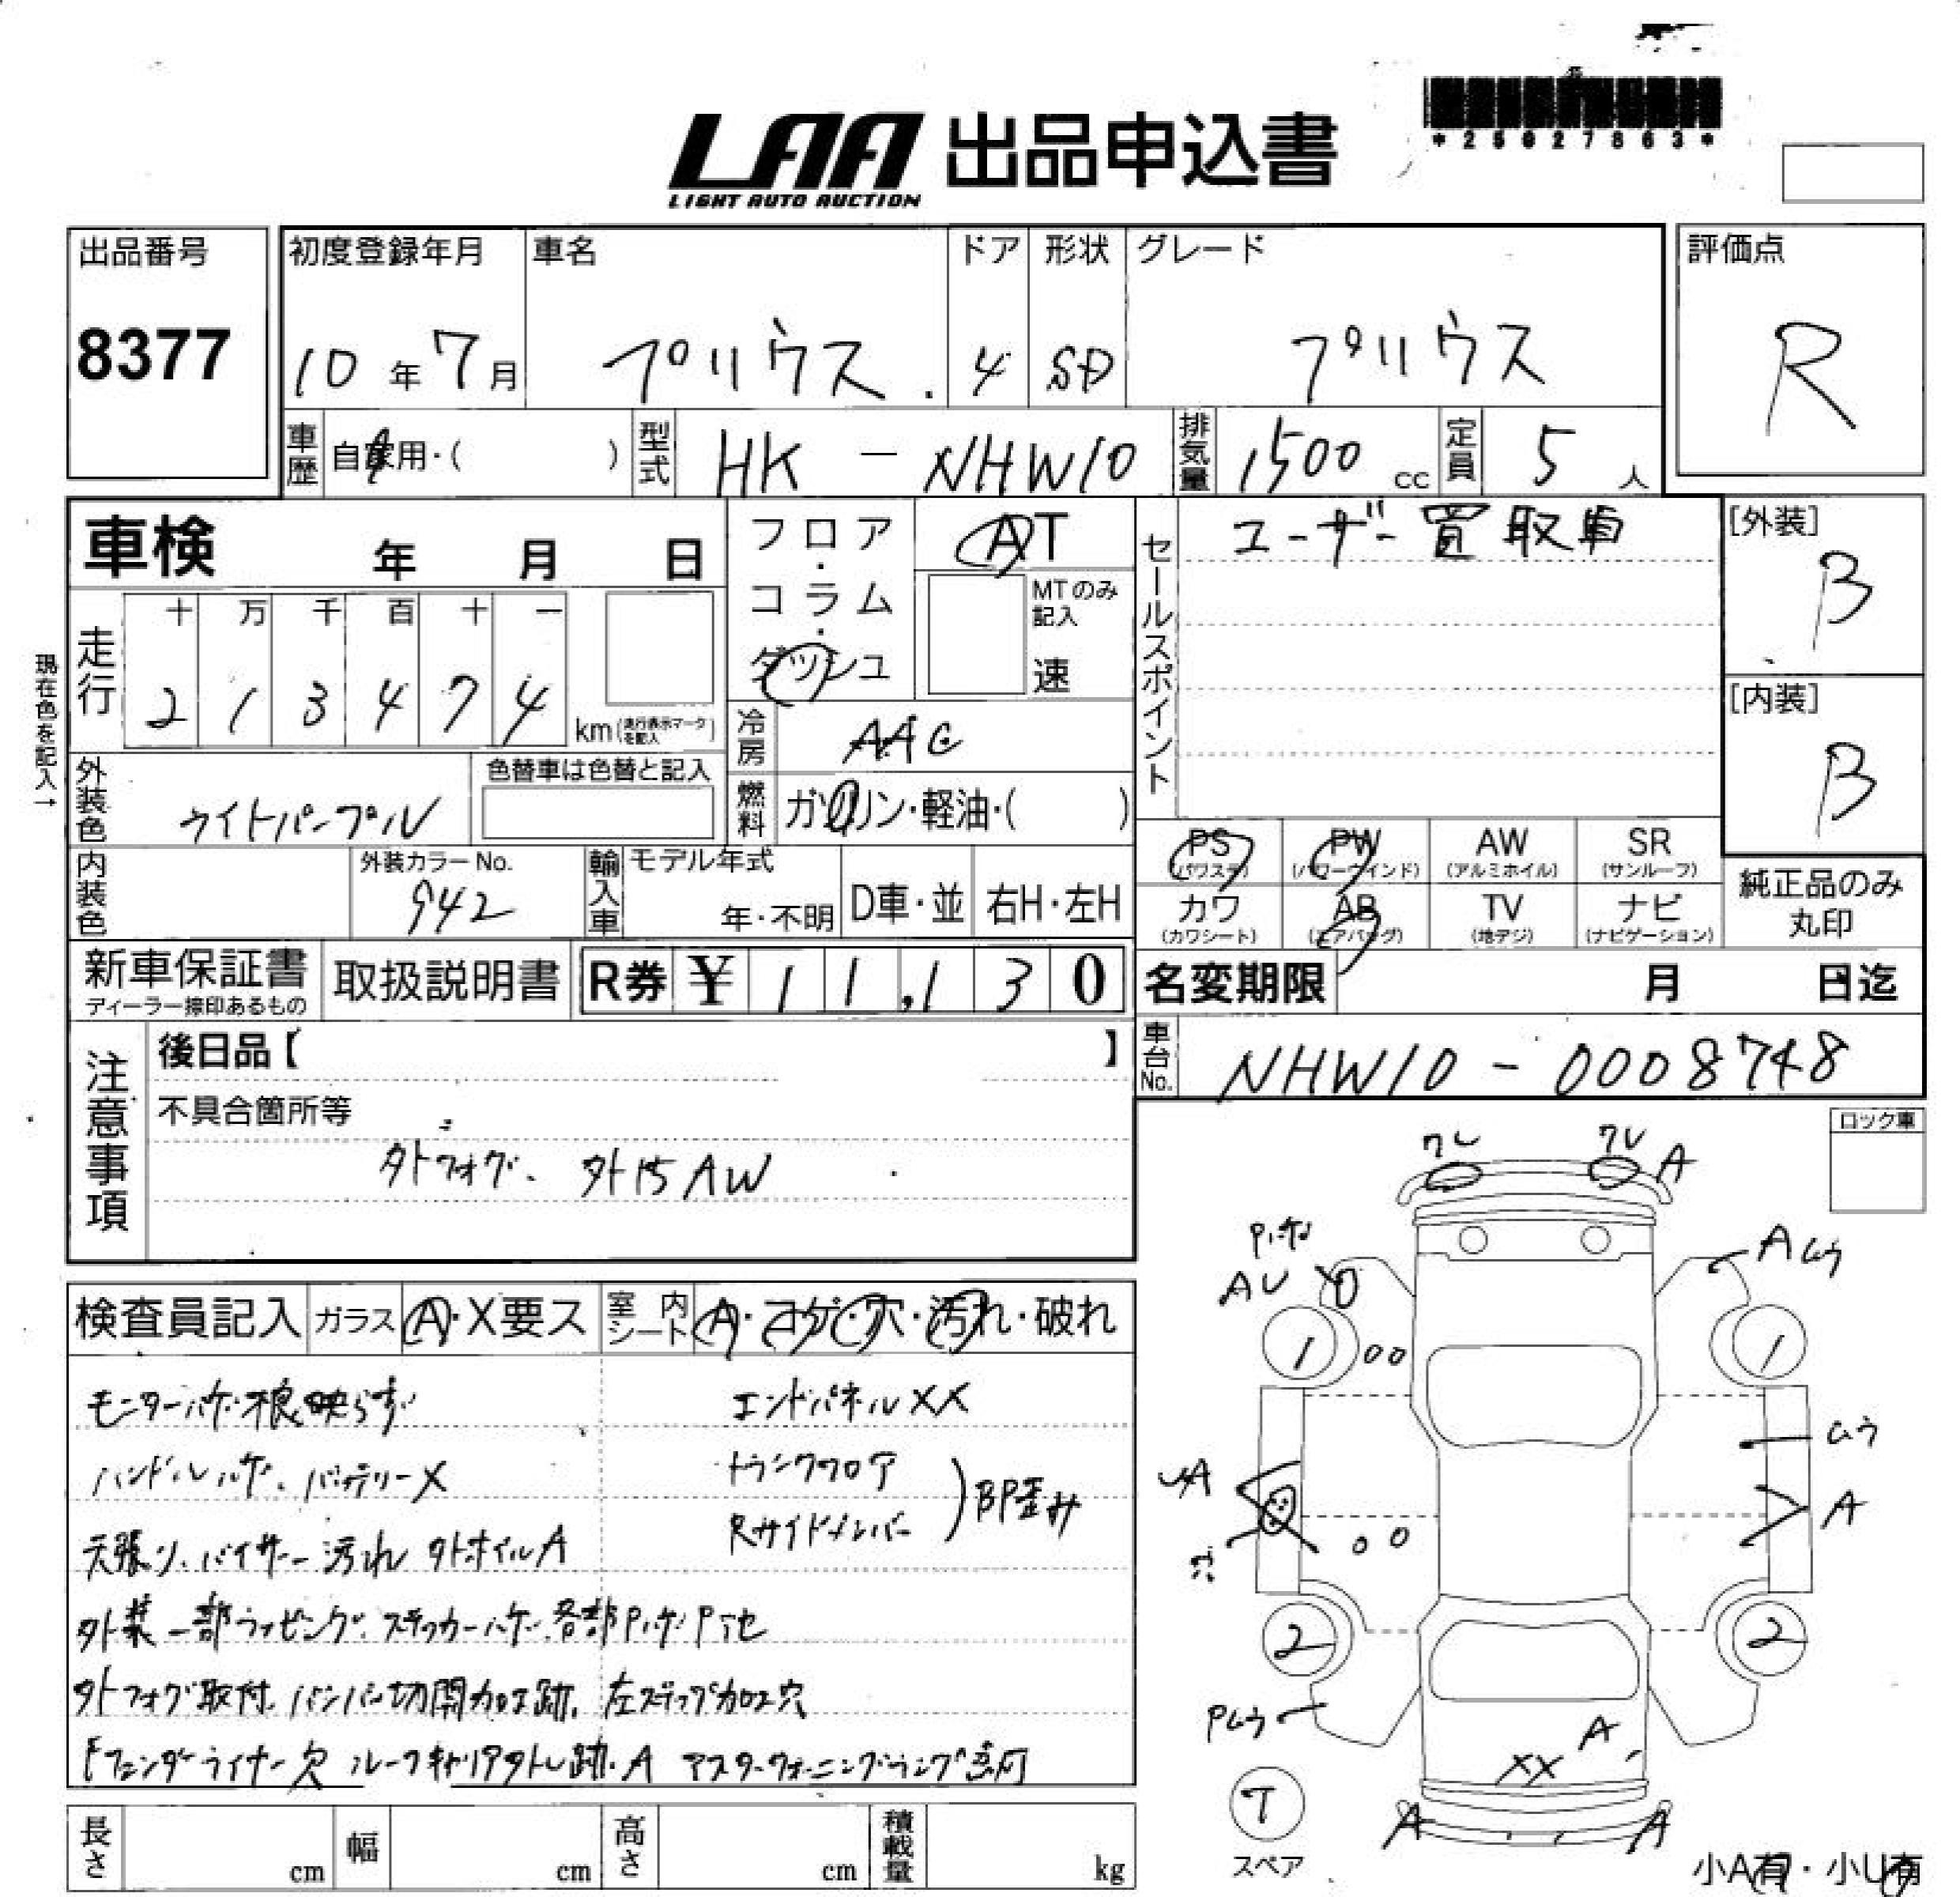 *25027863*
LAA 出品申込書
LIGHT AUTO AUCTION
出品番号
8377
初度登録年月
10年7月
車名
プリウス
ドア
4
形状
SD
グレード
プリウス
評価点
R
車歴 自家用・( )
型式 HK - NHW10
排気量 1500 cc
定員 5 人
車検 年 月 日
フロア・コラム・ダッシュ
AT
MTのみ記入
速
セールスポイント
ユーザー買取車
[外装]
B
[内装]
B
現在色を記入→
走行
十 万 千 百 十 一
2 1 3 4 7 4
km(走行表示マークを記入)
冷房 AAC
燃料 ガソリン・軽油・( )
外装色 ライトパープル
色替車は色替と記入
内装色
外装カラーNo.
942
輸入車
モデル年式
年・不明
D車・並
右H・左H
PS (パワステ)
PW (パワーウインド)
AW (アルミホイル)
SR (サンルーフ)
カワ (カワシート)
AB (エアバッグ)
TV (地デジ)
ナビ (ナビゲーション)
純正品のみ丸印
新車保証書
ディーラー捺印あるもの
取扱説明書
R券 ¥ 11,130
名変期限 月 日迄
車台No. NHW10-0008748
注意事項
後日品【 】
不具合箇所等
外フォグ、外15AW
ロック車
検査員記入
ガラス A・X要ス
室内シート A・コゲ・穴・汚れ・破れ
モニターハゲ・不良映らず
エンドパネルXX
ハンドルハゲ、バッテリーX
トランクフロア
Rサイドメンバー
BP歪み
天張り、バイザー汚れ 外ホイルA
外装一部ラッピング、ステッカーハゲ、各部Pハゲ Pアセ
外フォグ取付、バンパー切開加工跡、左ステップ加工穴
Fフェンダーライナー欠 ルーフキャリア外し跡・A マスターウォーニングランプ点灯
ワレ
ワレ
A
Pハゲ
AU
Aムラ
1
1
ムラ
UA
A
穴
2
2
Pムラ
A
XX
T
スペア
A
A
小A有・小U有
長さ cm
幅 cm
高さ cm
積載量 kg